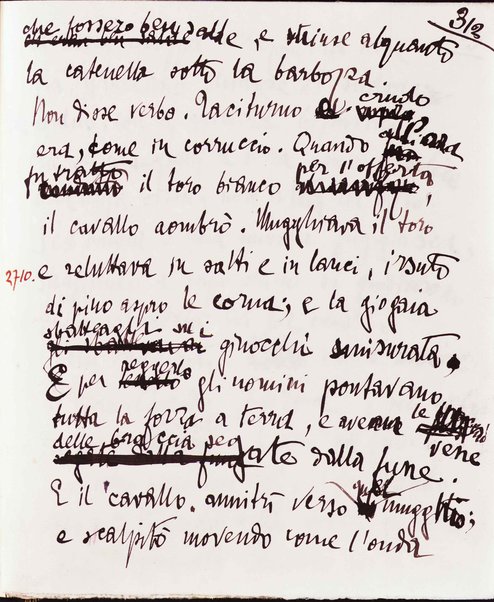 312
che fossero ben salde, e strinse alquanto
la catenella sotto la barbozza.
Non disse verbo. Taciturno e crudo
era, come in corruccio. Quando all'ara
fu tratto il toro bianco per l'offerta,
il cavallo aombrò. Mugghiava il toro
2710. e reluttava in salti e in lanci, irsuto
di pino aspro le corna; e la giogaia
sbattegli sui
ginocchi smisurata.
E per reggerlo gli uomini pontavano
tutta la forza a terra, e avean le vene
delle braccia segate dalla fune.
E il cavallo annitrì verso quel mugghio;
e scalpitò movendo come l'onda